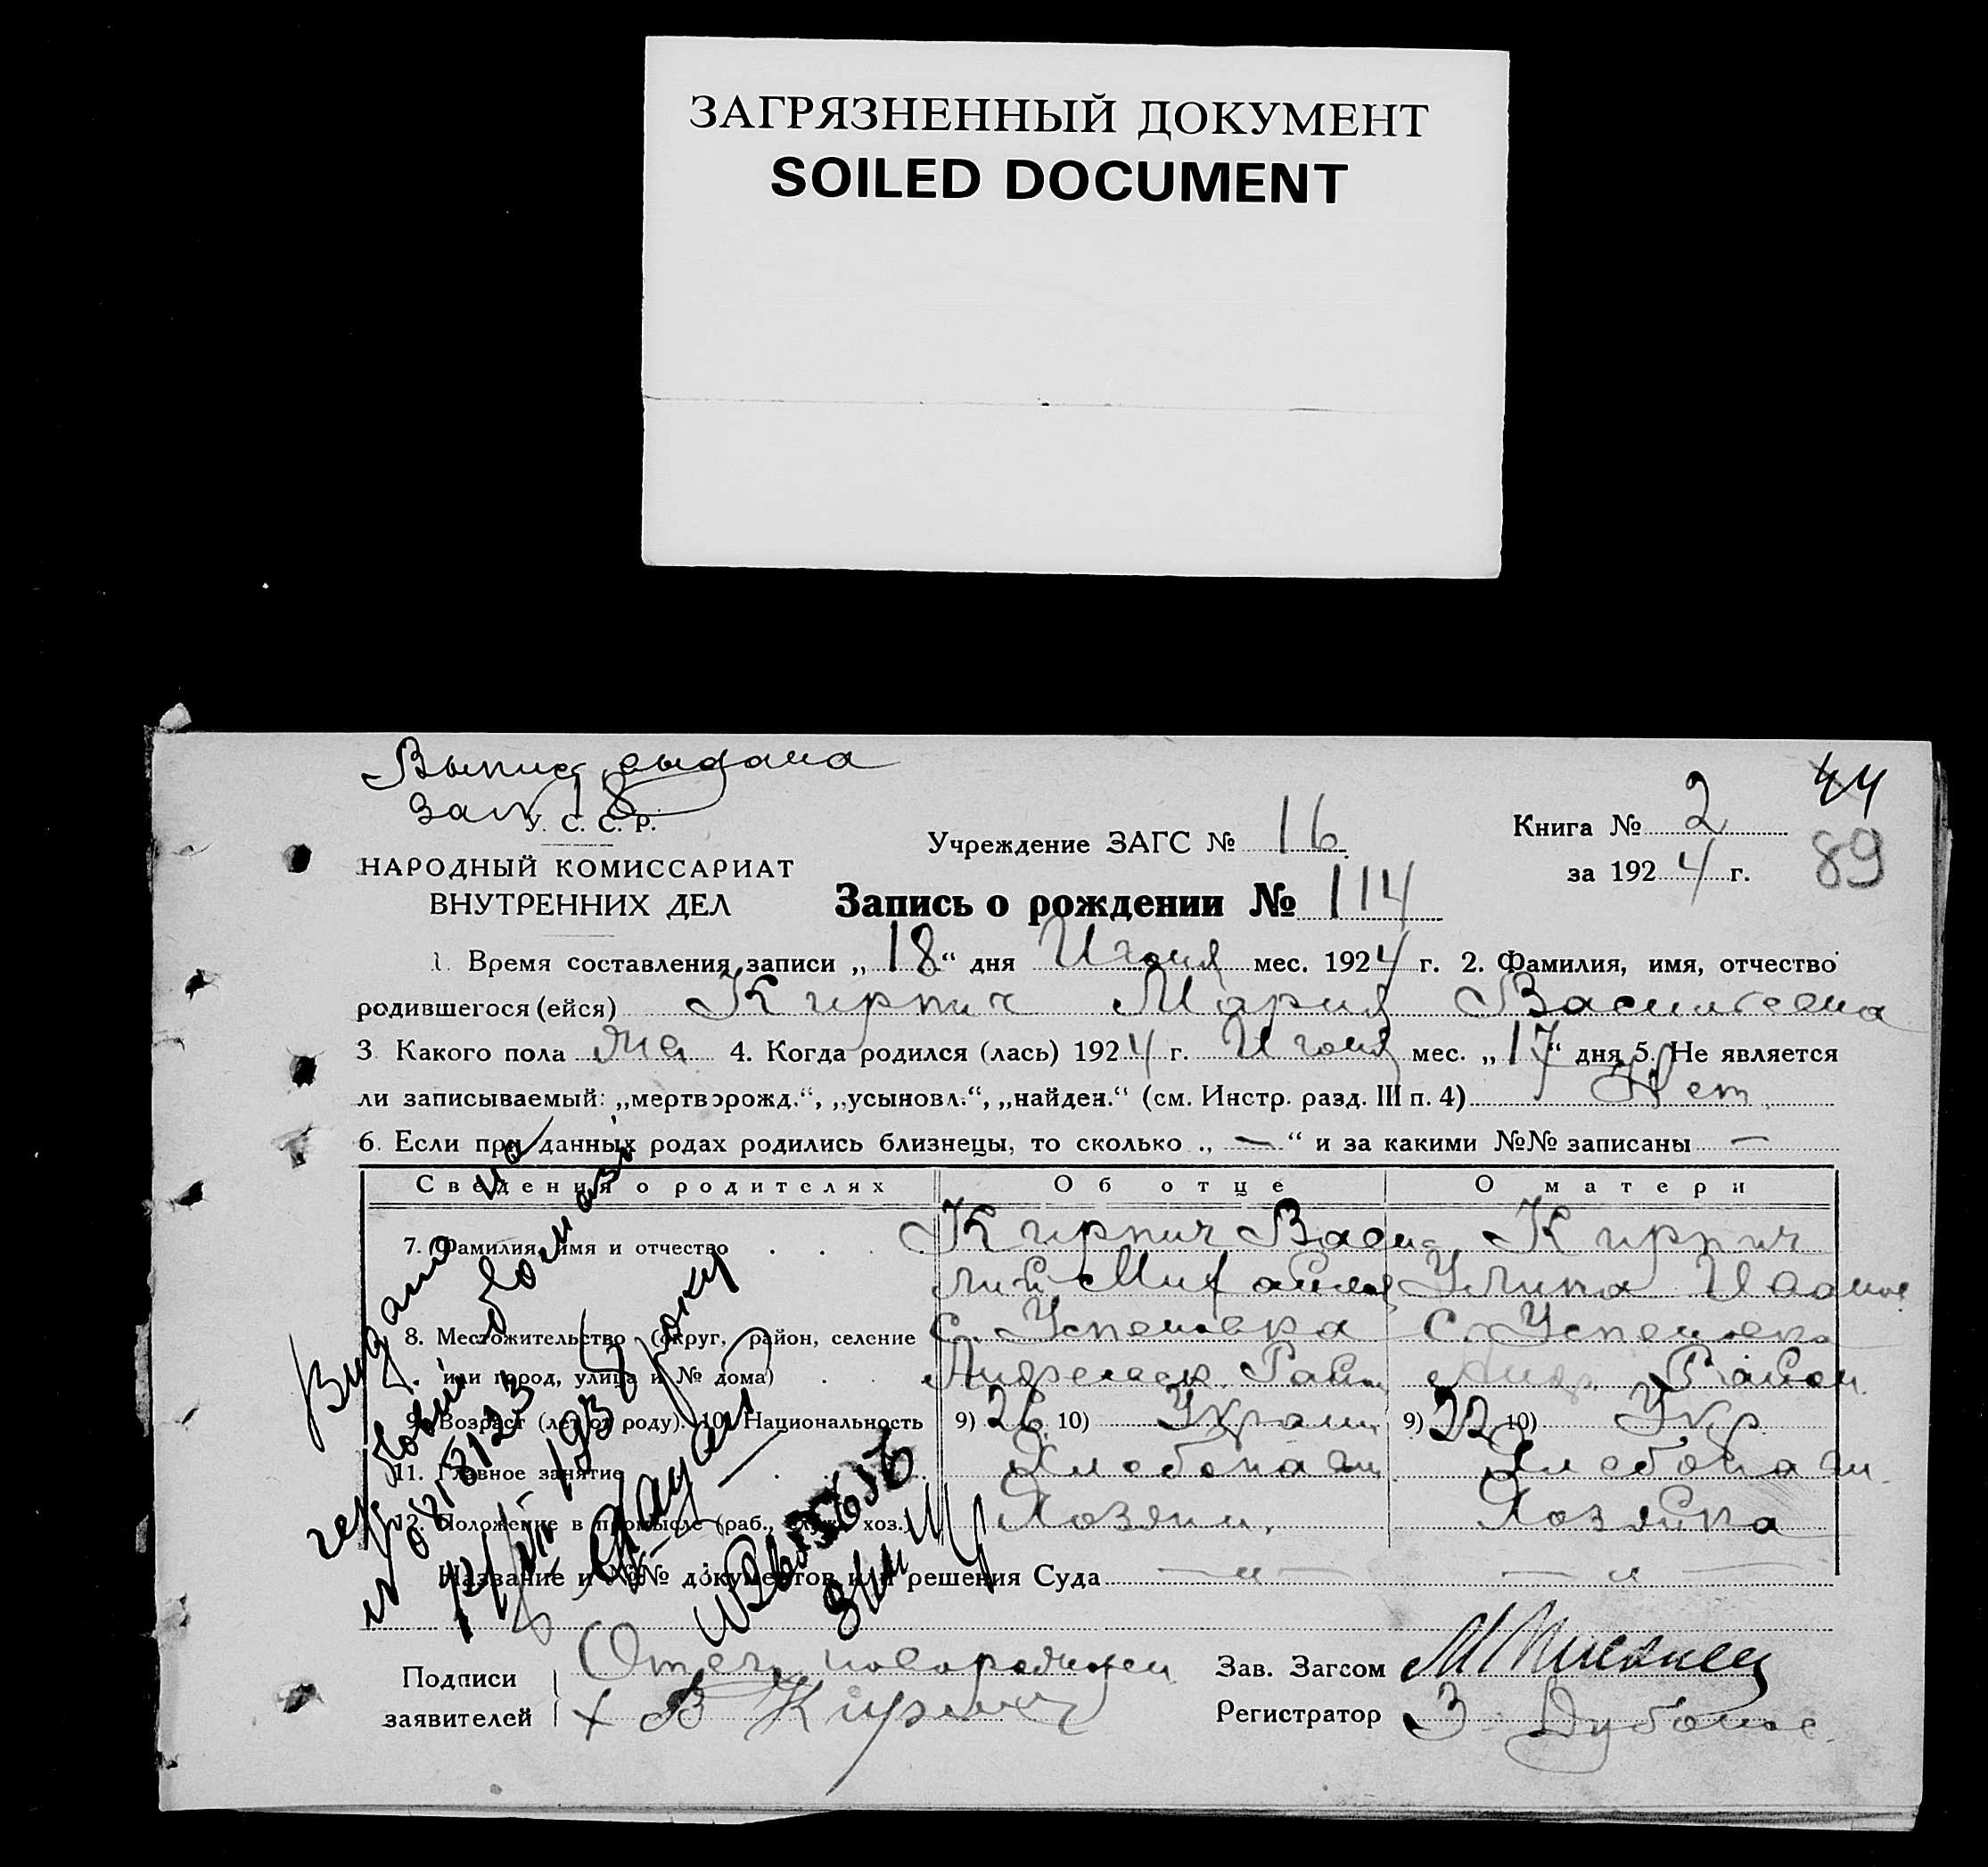 ЗАГРЯЗНЕННЫЙ ДОКУМЕНТ
SOILED DOCUMENT
Выпис выдана
44
У. С. С. Р.
НАРОДНЫЙ КОМИССАРИАТ
ВНУТРЕННИХ ДЕЛ
Учреждение ЗАГС № 16
Книга № 2
за 1924 г.
89
Запись о рождении № 114
1. Время составления записи „18“ дня Июня мес. 1924 г. 2. Фамилия, имя, отчество
родившегося (ейся) Кирпич Мария Васильевна
3. Какого пола 4. Когда родился (лась) 1924 г. Июня мес. „17“ дня 5. Не является
ли записываемый: „мертворожд.“, „усыновл.“, „найден.“ (см. Инстр. разд. III п. 4) Нет
6. Если при данных родах родились близнецы, то сколько „ — “ и за какими №№ записаны —
Сведения о родителях Об отце О матери
7. Фамилия, имя и отчество Кирпич Васи- Кирпич
лий Михайлов Улита Иванов
8. Местожительство (округ, район, селение С. Успеновка С. Успеновка
или город, улица и № дома) Андреевск. Район Андр. Район
9. Возраст (лет от роду). 10. Национальность 9) 26 10) Украин 9) 22 10) Укр
11. Главное занятие Хлебопаш Хлебопаш
12. Положение в промысле (раб., служ., хоз.) Хозяин. Хозяйка
Название и №№ документов или решения Суда — „ — — „ —
Подписи
заявителей
Отец новорожден
+ В Кирпич
Зав. Загсом
Регистратор
Видано
на
193 року